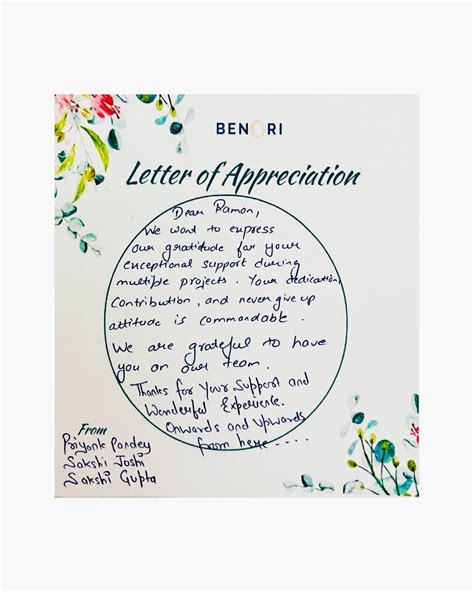 BENORI
Letter of Appreciation
Dear Ramon,
We want to express
our gratitude for your
exceptional support during
multiple projects. Your dedication,
Contribution, and never give up
attitude is commandable.
We are grateful to have
you on our team.
Thanks for Your Support and
Wonderful Experience.
Onwards and Upwards
from here ....
From
Priyank Pandey
Sakshi Joshi
Sakshi Gupta